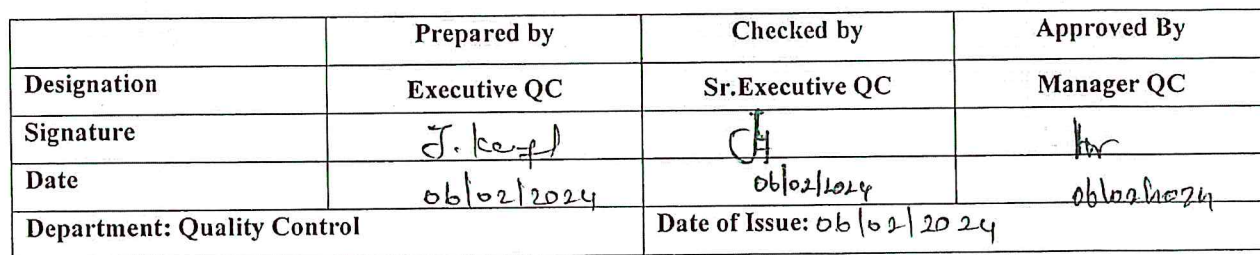 Prepared by Checked by Approved By
Designation Executive QC Sr.Executive QC Manager QC
Signature J.
Date 06/02/2024 06/02/2024 06/02/2024
Department: Quality Control Date of Issue: 06/02/2024